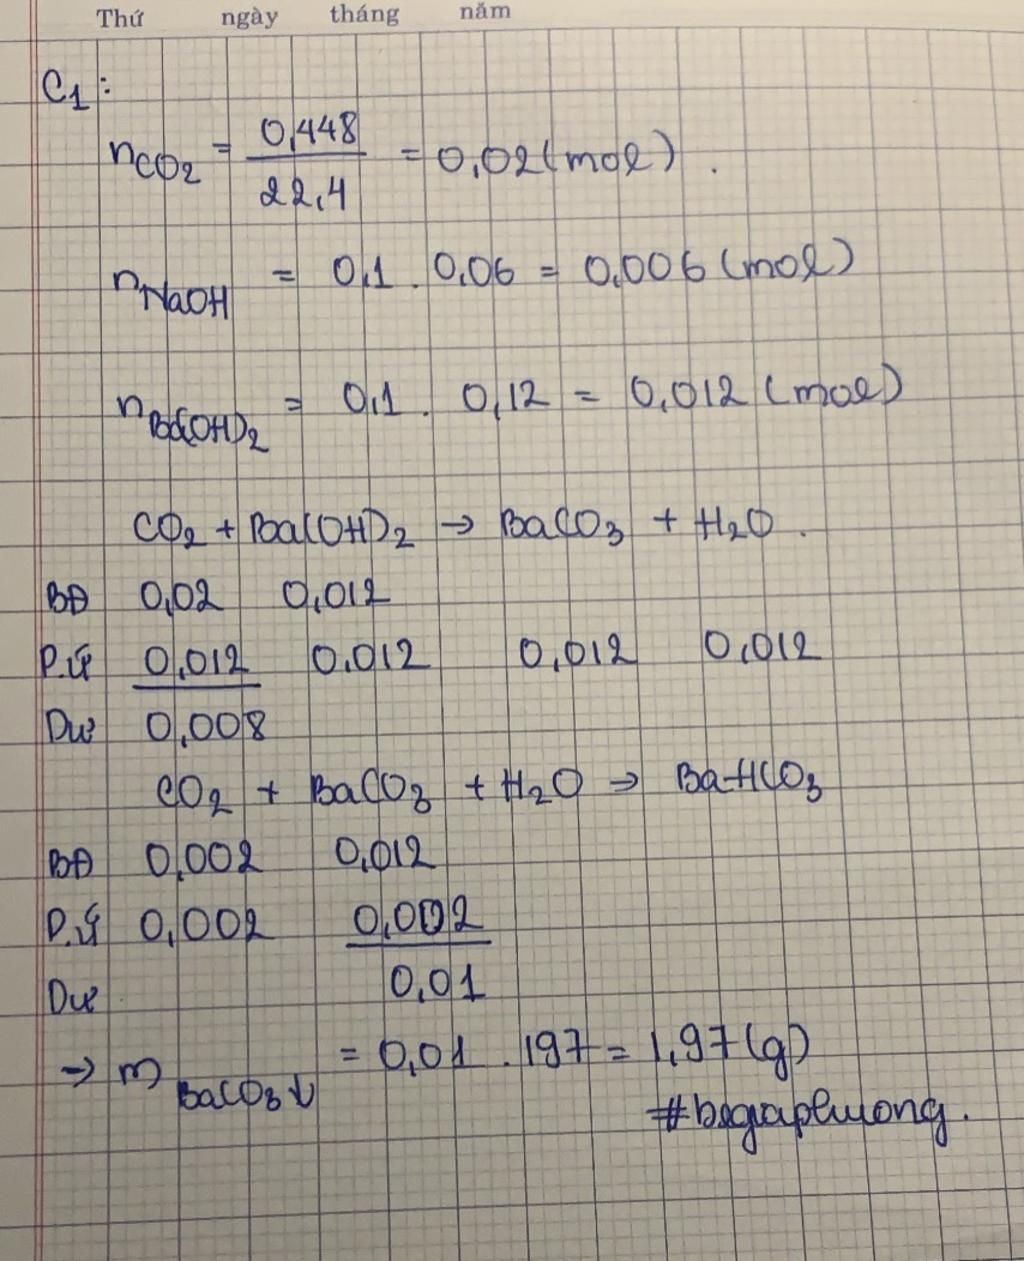 Thứ ngày tháng năm
C1:
nCO2 = 0,448 / 22,4 = 0,02 (mol).
nNaOH = 0,1 . 0,06 = 0,006 (mol)
nBa(OH)2 = 0,1 . 0,12 = 0,012 (mol)
CO2 + Ba(OH)2 → BaCO3 + H2O.
BĐ 0,02 0,012
P.Ứ 0,012 0,012 0,012 0,012
Dư 0,008
CO2 + BaCO3 + H2O → BaHCO3
BĐ 0,002 0,012
P.Ứ 0,002 0,002
Dư 0,01
→ m BaCO3↓ = 0,01 . 197 = 1,97 (g)